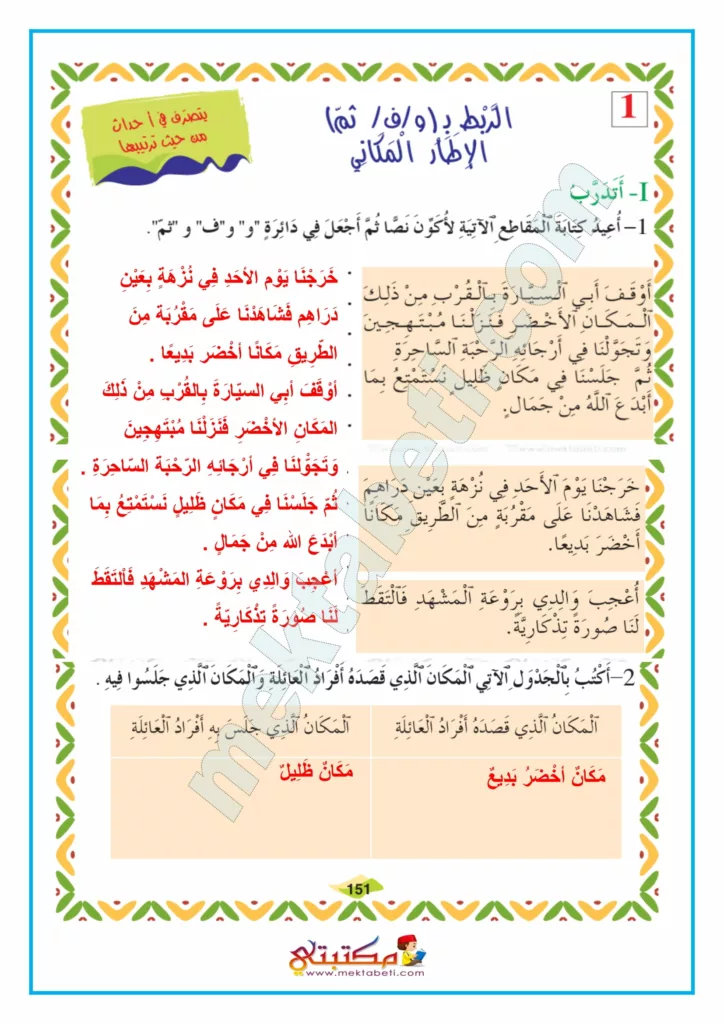 1
الرَّبْطُ بِـ (و/ف/ ثمّ)
الإِطَارُ الْمَكَانِي
يتصرّف في أحداث
من حيث ترتيبها
I- أَتَدَرَّبُ
1- أُعِيدُ كِتَابَةَ الْمَقَاطِعِ الآتِيَةِ لأُكَوِّنَ نَصًّا ثُمَّ أَجْعَلَ فِي دَائِرَةٍ "و" و"ف" و "ثمّ".
أَوْقَفَ أَبِي السَّيَّارَةَ بِالْقُرْبِ مِنْ ذَلِكَ
الْمَكَانِ الأَخْضَرِ فَنَزَلْنَا مُبْتَهِجِينَ
وَتَجَوَّلْنَا فِي أَرْجَائِهِ الرَّحْبَةِ السَّاحِرَةِ
ثُمَّ جَلَسْنَا فِي مَكَانٍ ظَلِيلٍ نَسْتَمْتِعُ بِمَا
أَبْدَعَ اللَّهُ مِنْ جَمَالٍ.
خَرَجْنَا يَوْمَ الأَحَدِ فِي نُزْهَةٍ بِعَيْنِ دَرَاهِمَ
فَشَاهَدْنَا عَلَى مَقْرُبَةٍ مِنَ الطَّرِيقِ مَكَانًا
أَخْضَرَ بَدِيعًا.
أُعْجِبَ وَالِدِي بِرَوْعَةِ الْمَشْهَدِ فَالْتَقَطَ
لَنَا صُورَةً تِذْكَارِيَّةً.
خَرَجْنَا يَوْم الأحَدِ فِي نُزْهَةٍ بِعَيْنِ
دَرَاهِم فَشَاهَدْنَا عَلَى مَقْرُبَة مِنَ
الطّرِيقِ مَكَانًا أخْضَر بَدِيعًا .
أوْقَفَ أبِي السيّارَةَ بِالقُرْبِ مِنْ ذَلِكَ
المَكَانِ الأخْضَرِ فَنَزَلْنَا مُبْتَهِجِينَ
وَتَجَوْلنَا فِي أرْجَائِهِ الرّحْبَة السّاحِرَةِ .
ثُمّ جَلَسْنَا فِي مَكَانٍ ظَلِيلٍ نَسْتَمْتِعُ بِمَا
أبْدَعَ الله مِنْ جَمَالٍ .
أعْجِبَ وَالِدِي بِرَوْعَةِ المَشْهَدِ فَالتَقَطَ
لَنَا صُورَةً تِذْكَارِيّةً .
2- أَكْتُبُ بِالْجَدْوَلِ الآتِي الْمَكَانَ الَّذِي قَصَدَهُ أَفْرَادُ الْعَائِلَةِ وَالْمَكَانَ الَّذِي جَلَسُوا فِيهِ .
الْمَكَانُ الَّذِي قَصَدَهُ أَفْرَادُ الْعَائِلَةِ
الْمَكَانُ الَّذِي جَلَسَ بِهِ أَفْرَادُ الْعَائِلَةِ
مَكَانٌ أخْضَرُ بَدِيعٌ
مَكَانٌ ظَلِيلٌ
151
مكتبتي
www.mektabeti.com
mektabeti.com